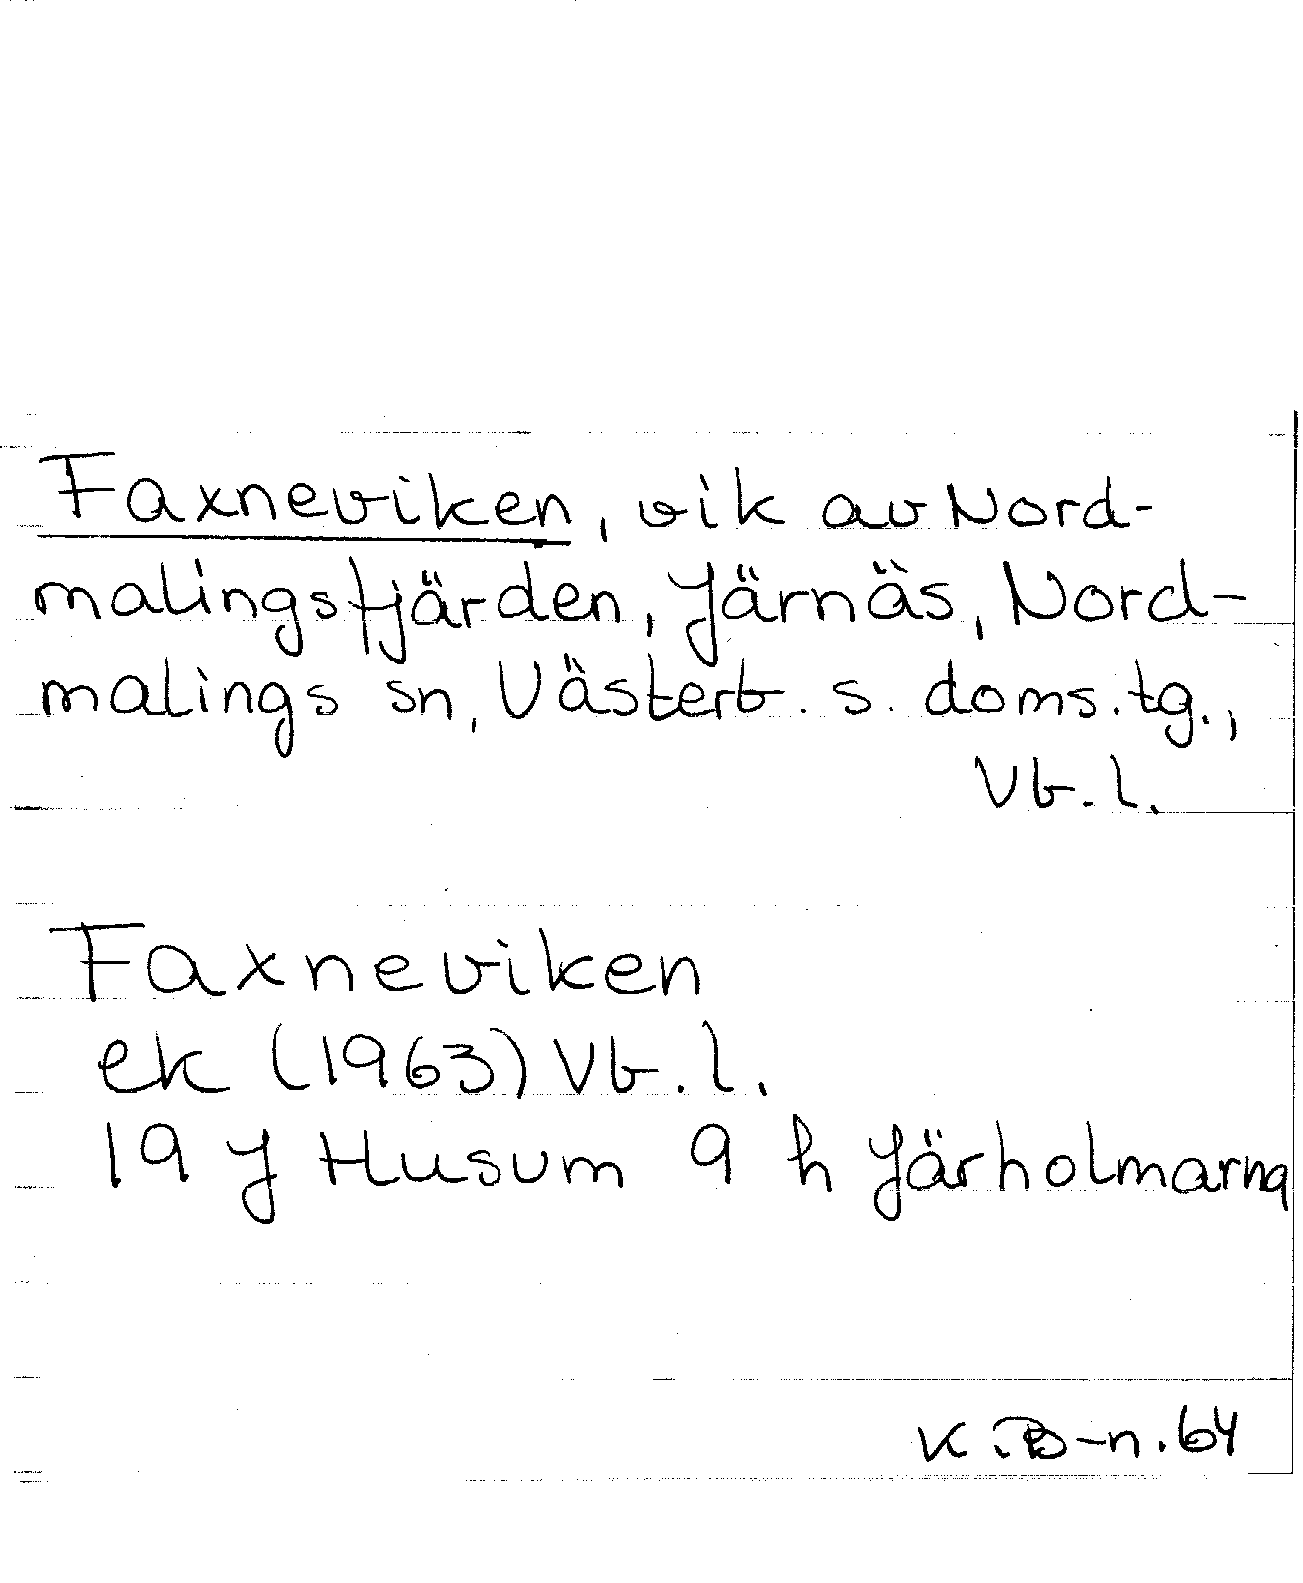 Faxneviken, vik av Nord-
malingsfjärden, Järnäs, Nord-
malings sn, Västerb. s. doms. tg.,
Vb. l.
Faxneviken
ek (1963) Vb. l.
19 J Husum 9 h Järholmarna
K. B-n. 64